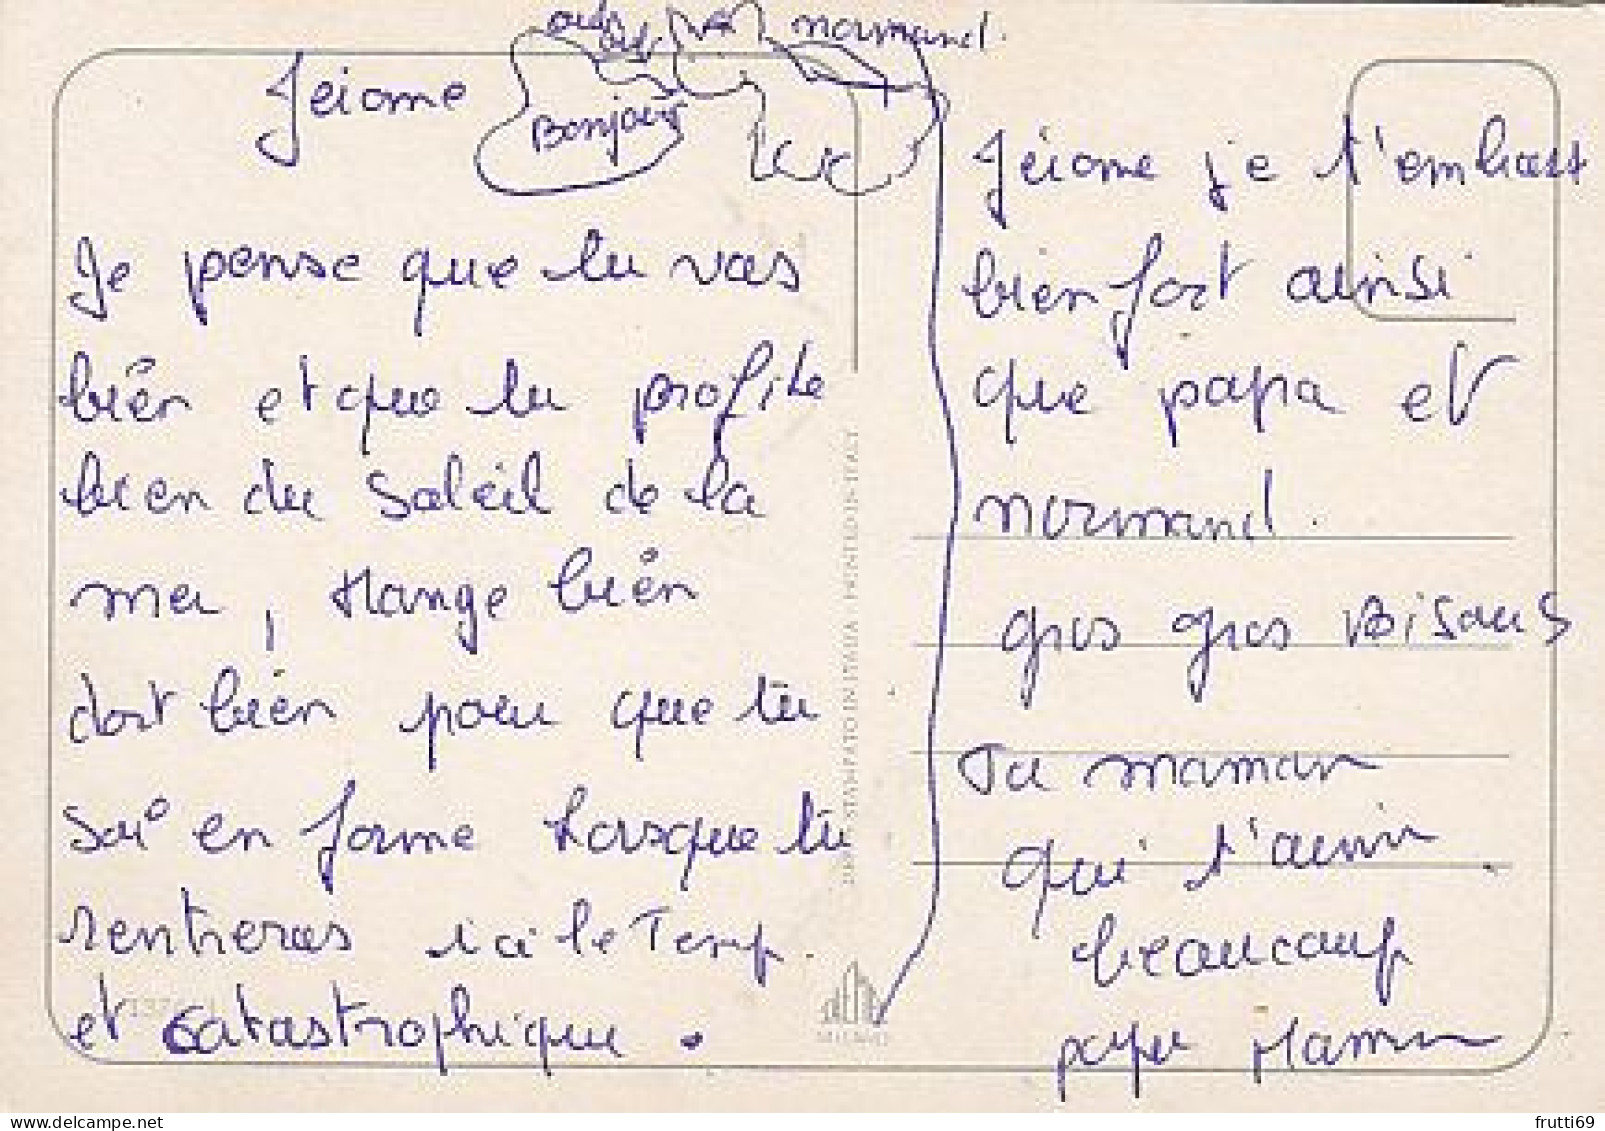 normand.
Jérome
Bonjour
Je pense que tu vas
bien et que tu profite
bien du soleil de la
mer, Mange bien
dort bien pour que tu
soie en forme Lorsque tu
rentreras ici le Temp
et catastrophique.
Jérome je t'embrasse
bien fort ainsi
que papa et
normand.
gros gros Bisous
Ta maman
qui t'aime
beaucoup
papa Maman
STAMPATO IN ITALIA PRINTED IN ITALY
MILANO
frutti69